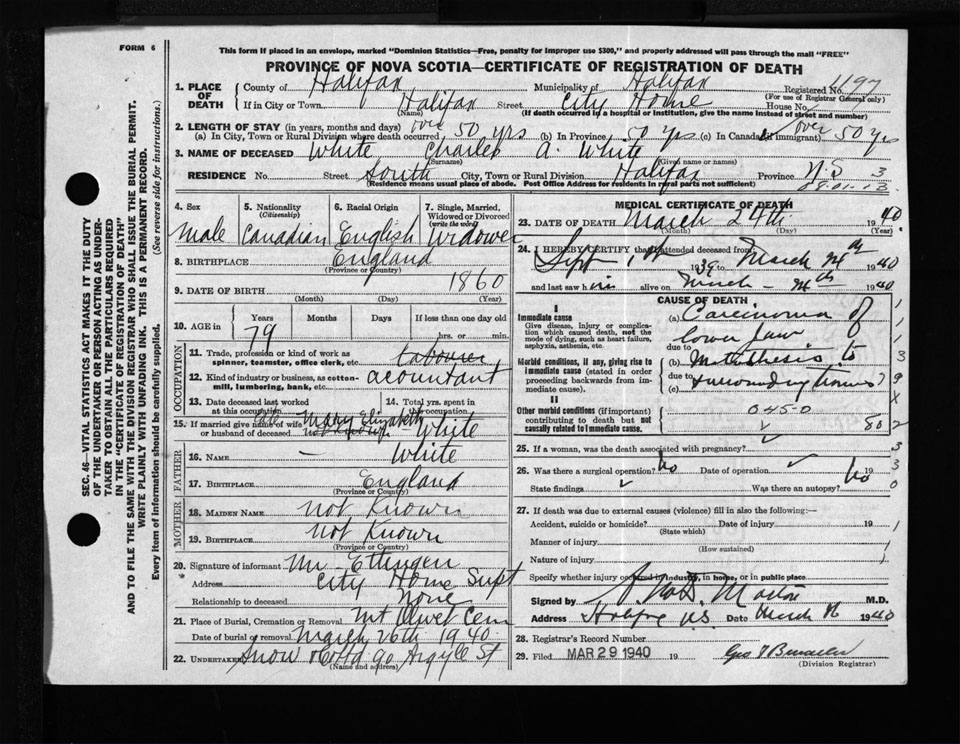 FORM 6
This form if placed in an envelope, marked "Dominion Statistics—Free, penalty for improper use $300," and properly addressed will pass through the mail "FREE"
PROVINCE OF NOVA SCOTIA—CERTIFICATE OF REGISTRATION OF DEATH
1. PLACE OF DEATH County of Halifax Municipality of Halifax Registered No. 1197
(For use of Registrar General only)
If in City or Town Halifax Street City Home House No.
(Name) (If death occurred in a hospital or institution, give the name instead of street and number)
2. LENGTH OF STAY (in years, months and days)
(a) In City, Town or Rural Division where death occurred over 50 yrs (b) In Province 50 yrs (c) In Canada (if immigrant) over 50 yrs
3. NAME OF DECEASED White Charles A. White
(Surname) (Given name or names)
RESIDENCE No. Street South City, Town or Rural Division Halifax Province N.S 3
(Residence means usual place of abode. Post Office Address for residents in rural parts not sufficient)
4. Sex Male
5. Nationality (Citizenship) Canadian
6. Racial Origin English
7. Single, Married, Widowed or Divorced (write the word) Widower
8. BIRTHPLACE England
(Province or Country)
9. DATE OF BIRTH 1860
(Month) (Day) (Year)
10. AGE in Years 79 Months Days If less than one day old
hrs. or min.
OCCUPATION
11. Trade, profession or kind of work as spinner, teamster, office clerk, etc. Labourer
12. Kind of industry or business, as cotton-mill, lumbering, bank, etc. acountant
13. Date deceased last worked at this occupation
14. Total yrs. spent in this occupation
15. If married give name of wife or husband of deceased late Mary Elizabeth White
FATHER
16. Name — White
17. Birthplace England
(Province or Country)
MOTHER
18. Maiden Name not Known
19. Birthplace not Known
(Province or Country)
20. Signature of informant Mr Ettingen
Address City Home Supt
Relationship to deceased None
21. Place of Burial, Cremation or Removal Mt Olivet Cem
Date of burial or removal March 26th 1940
22. Undertaker Snow & Co Ltd 90 Argyle St
(Name and address)
MEDICAL CERTIFICATE OF DEATH
23. DATE OF DEATH March 24th 1940
(Month) (Day) (Year)
24. I HEREBY CERTIFY that I attended deceased from:
Sept 1st 1939 to March 1940
and last saw him alive on March 1940
CAUSE OF DEATH
I
Immediate cause
Give disease, injury or complication which caused death, not the mode of dying, such as heart failure, asphyxia, asthenia, etc.
(a) Carcinoma of lower jaw
due to
Morbid conditions, if any, giving rise to immediate cause (stated in order proceeding backwards from immediate cause).
(b) Metathesis to
due to
(c) surrounding tissues
II
Other morbid conditions (if important) contributing to death but not causally related to immediate cause.
045-0
80
25. If a woman, was the death associated with pregnancy?
26. Was there a surgical operation? No Date of operation 19
State findings Was there an autopsy? No
27. If death was due to external causes (violence) fill in also the following:—
Accident, suicide or homicide? Date of injury 19
(State which)
Manner of injury
(How sustained)
Nature of injury
Specify whether injury occurred in industry, in home, or in public place
Signed by M.D.
Address Halifax N.S. Date March 1940
28. Registrar's Record Number
29. Filed MAR 29 1940 19
(Division Registrar)
SEC. 46—VITAL STATISTICS ACT MAKES IT THE DUTY
OF THE UNDERTAKER OR PERSON ACTING AS UNDER-
TAKER TO OBTAIN ALL THE PARTICULARS REQUIRED
IN THE "CERTIFICATE OF REGISTRATION OF DEATH"
AND TO FILE THE SAME WITH THE DIVISION REGISTRAR WHO SHALL ISSUE THE BURIAL PERMIT.
WRITE PLAINLY WITH UNFADING INK. THIS IS A PERMANENT RECORD.
Every item of information should be carefully supplied. (See reverse side for instructions.)